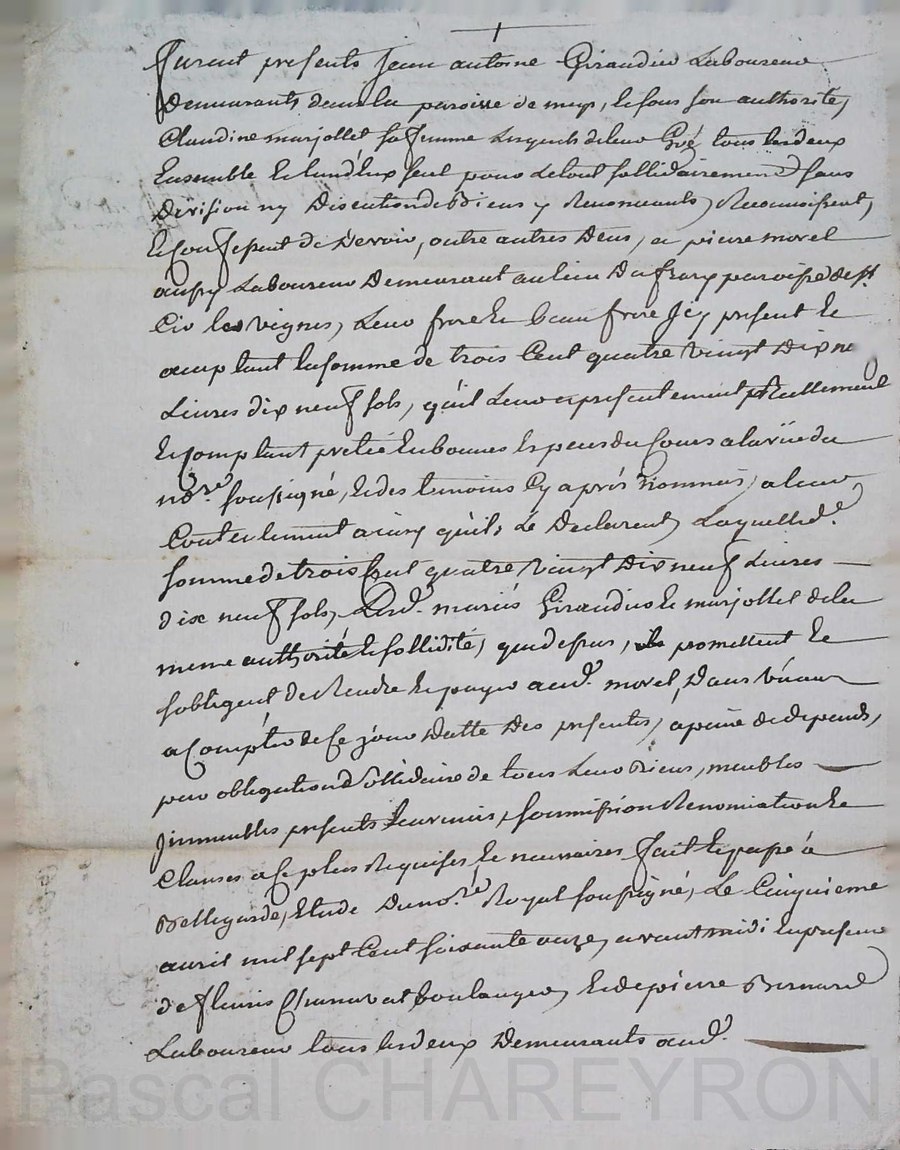 furent presents Jean antoine Giraudier Laboureur
Demeurants dans la paroisse de, & sous son authorité,
Claudine marjollet sa femme Lesquels de leur Gré, tous les deux
Ensemble & l'un d'Eux seul pour Le tout sollidairement sans
Division ny Discution de Biens y Renonceants, Reconnoissent,
& Confessent de Devoir, outre autres Deus, a pierre morel
aussy Laboureur Demeurant au lieu Du paroisse de st
Cir les vignes, Leur frere & beau frere Jcy present &
acceptant la somme de trois Cent quatre vingt Dix ne
Livres dix neuf sols, qu'il Leur a presentement Reellement
& Comptant preté En bonnes Especes du Cours a la vüe du
no.re soussigné, & des temoins Cy après Nommés, a leur
Contentement ainsy qu'ils Le Declarent, Laquelle d.e
somme de trois Cent quatre vingt Dix neuf Livres
dix neuf sols, Lesd. mariés Giraudier & marjollet de la
meme authorité & sollidité, que dessus, promettent &
s'obligent de Rendre & payer aud. morel, Dans un an
a Compter de Ce jour Datte Des presentes, a peine de depends,
par obligation Sollidaire de tous Leur Biens, meubles
Jmmeubles presents & avenir, soumission Renonciation &
Clauses a Ce plus Requises & necessaires fait & passé à
Bellegarde, Etude Du no.re Royal soussigné, Le Cinquieme
avril mil sept Cent soixante onze, avant midi En presence
de fleuris boulanger, & de pierre Bernard
Laboureur tous les deux Demeurants aud.
Pascal CHAREYRON